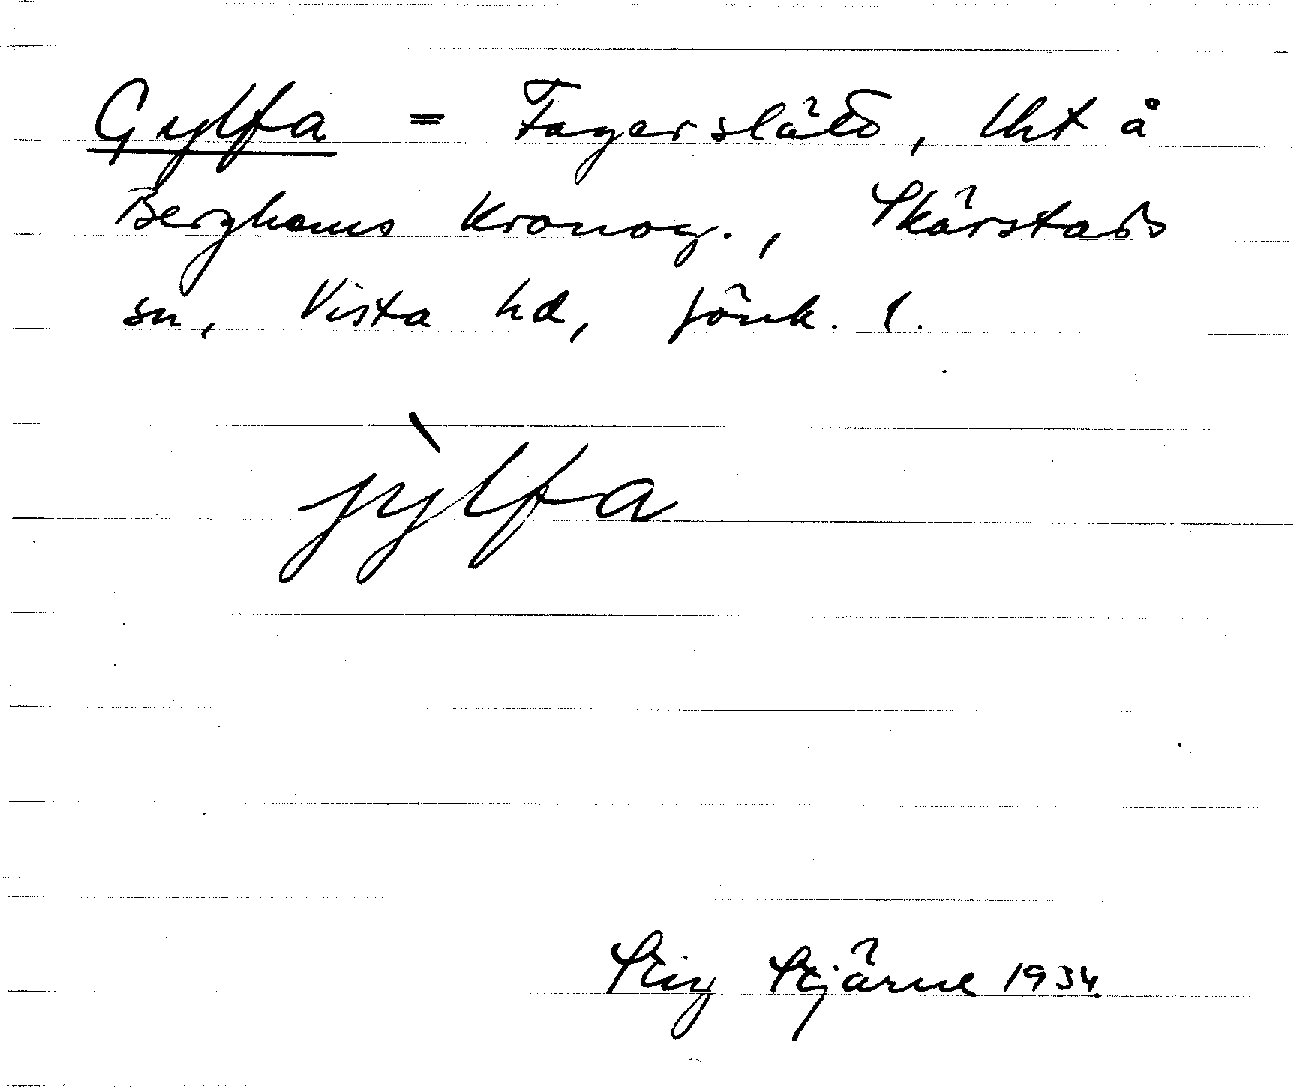 Gylfa = Fagerslätt, lht å
Berghems kronog., Skärstads
sn, Vista hd, Jönk. l.
jỳlfa
Stig Stjärne 1934